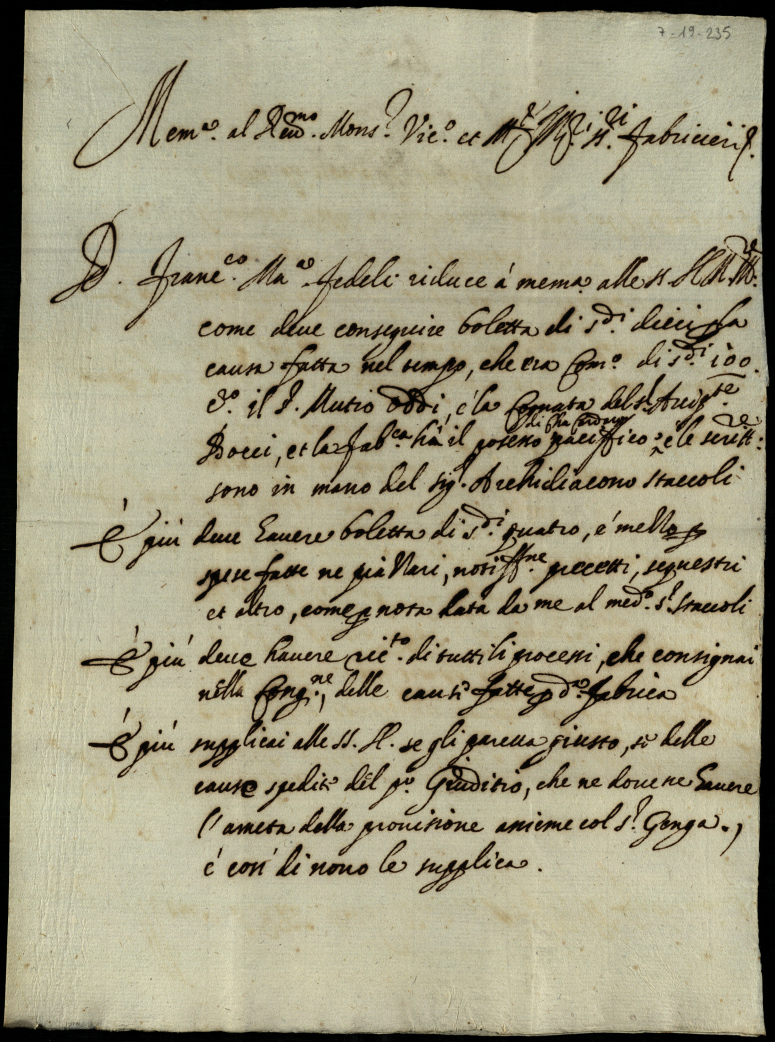 7-19-235
Mem.a al Reu.mo Mons.r Vic.o et SS.ri Fabricieri
D. Franc.co Ma.a Fedeli riduce á mem.a alle SS.
come deue conseguire boletta di s.di dieci p la
causa fatta nel tempo, che era Com.o di s.di 100.
é il S. Mutio Oddi, é la Comata del S.r
Bocci, et la Fab.ca há il posesso pacifico, é le scritt.re
di sua
sono in mano del Sig.r Archidiacono Staccoli
É piú deue hauere boletta di s.di quatro, é mezzo p
spese fatte ne piazzari, notiff.ne precetti, sequestri
et altro, come p nota data da me al med.o S.r Staccoli
É piú deue hauere ric.to di tutti li processi, che consignai
nella Cong.ne, delle cause fatte p d.a fabrica
É piú supplicai alle SS. se gli pareua giusto, se delle
cause spedite del p.o Giuditio, che ne doueue hauere
l'ameta della prouisione asieme col S.r Genga.,
é cosí di nouo le supplica.